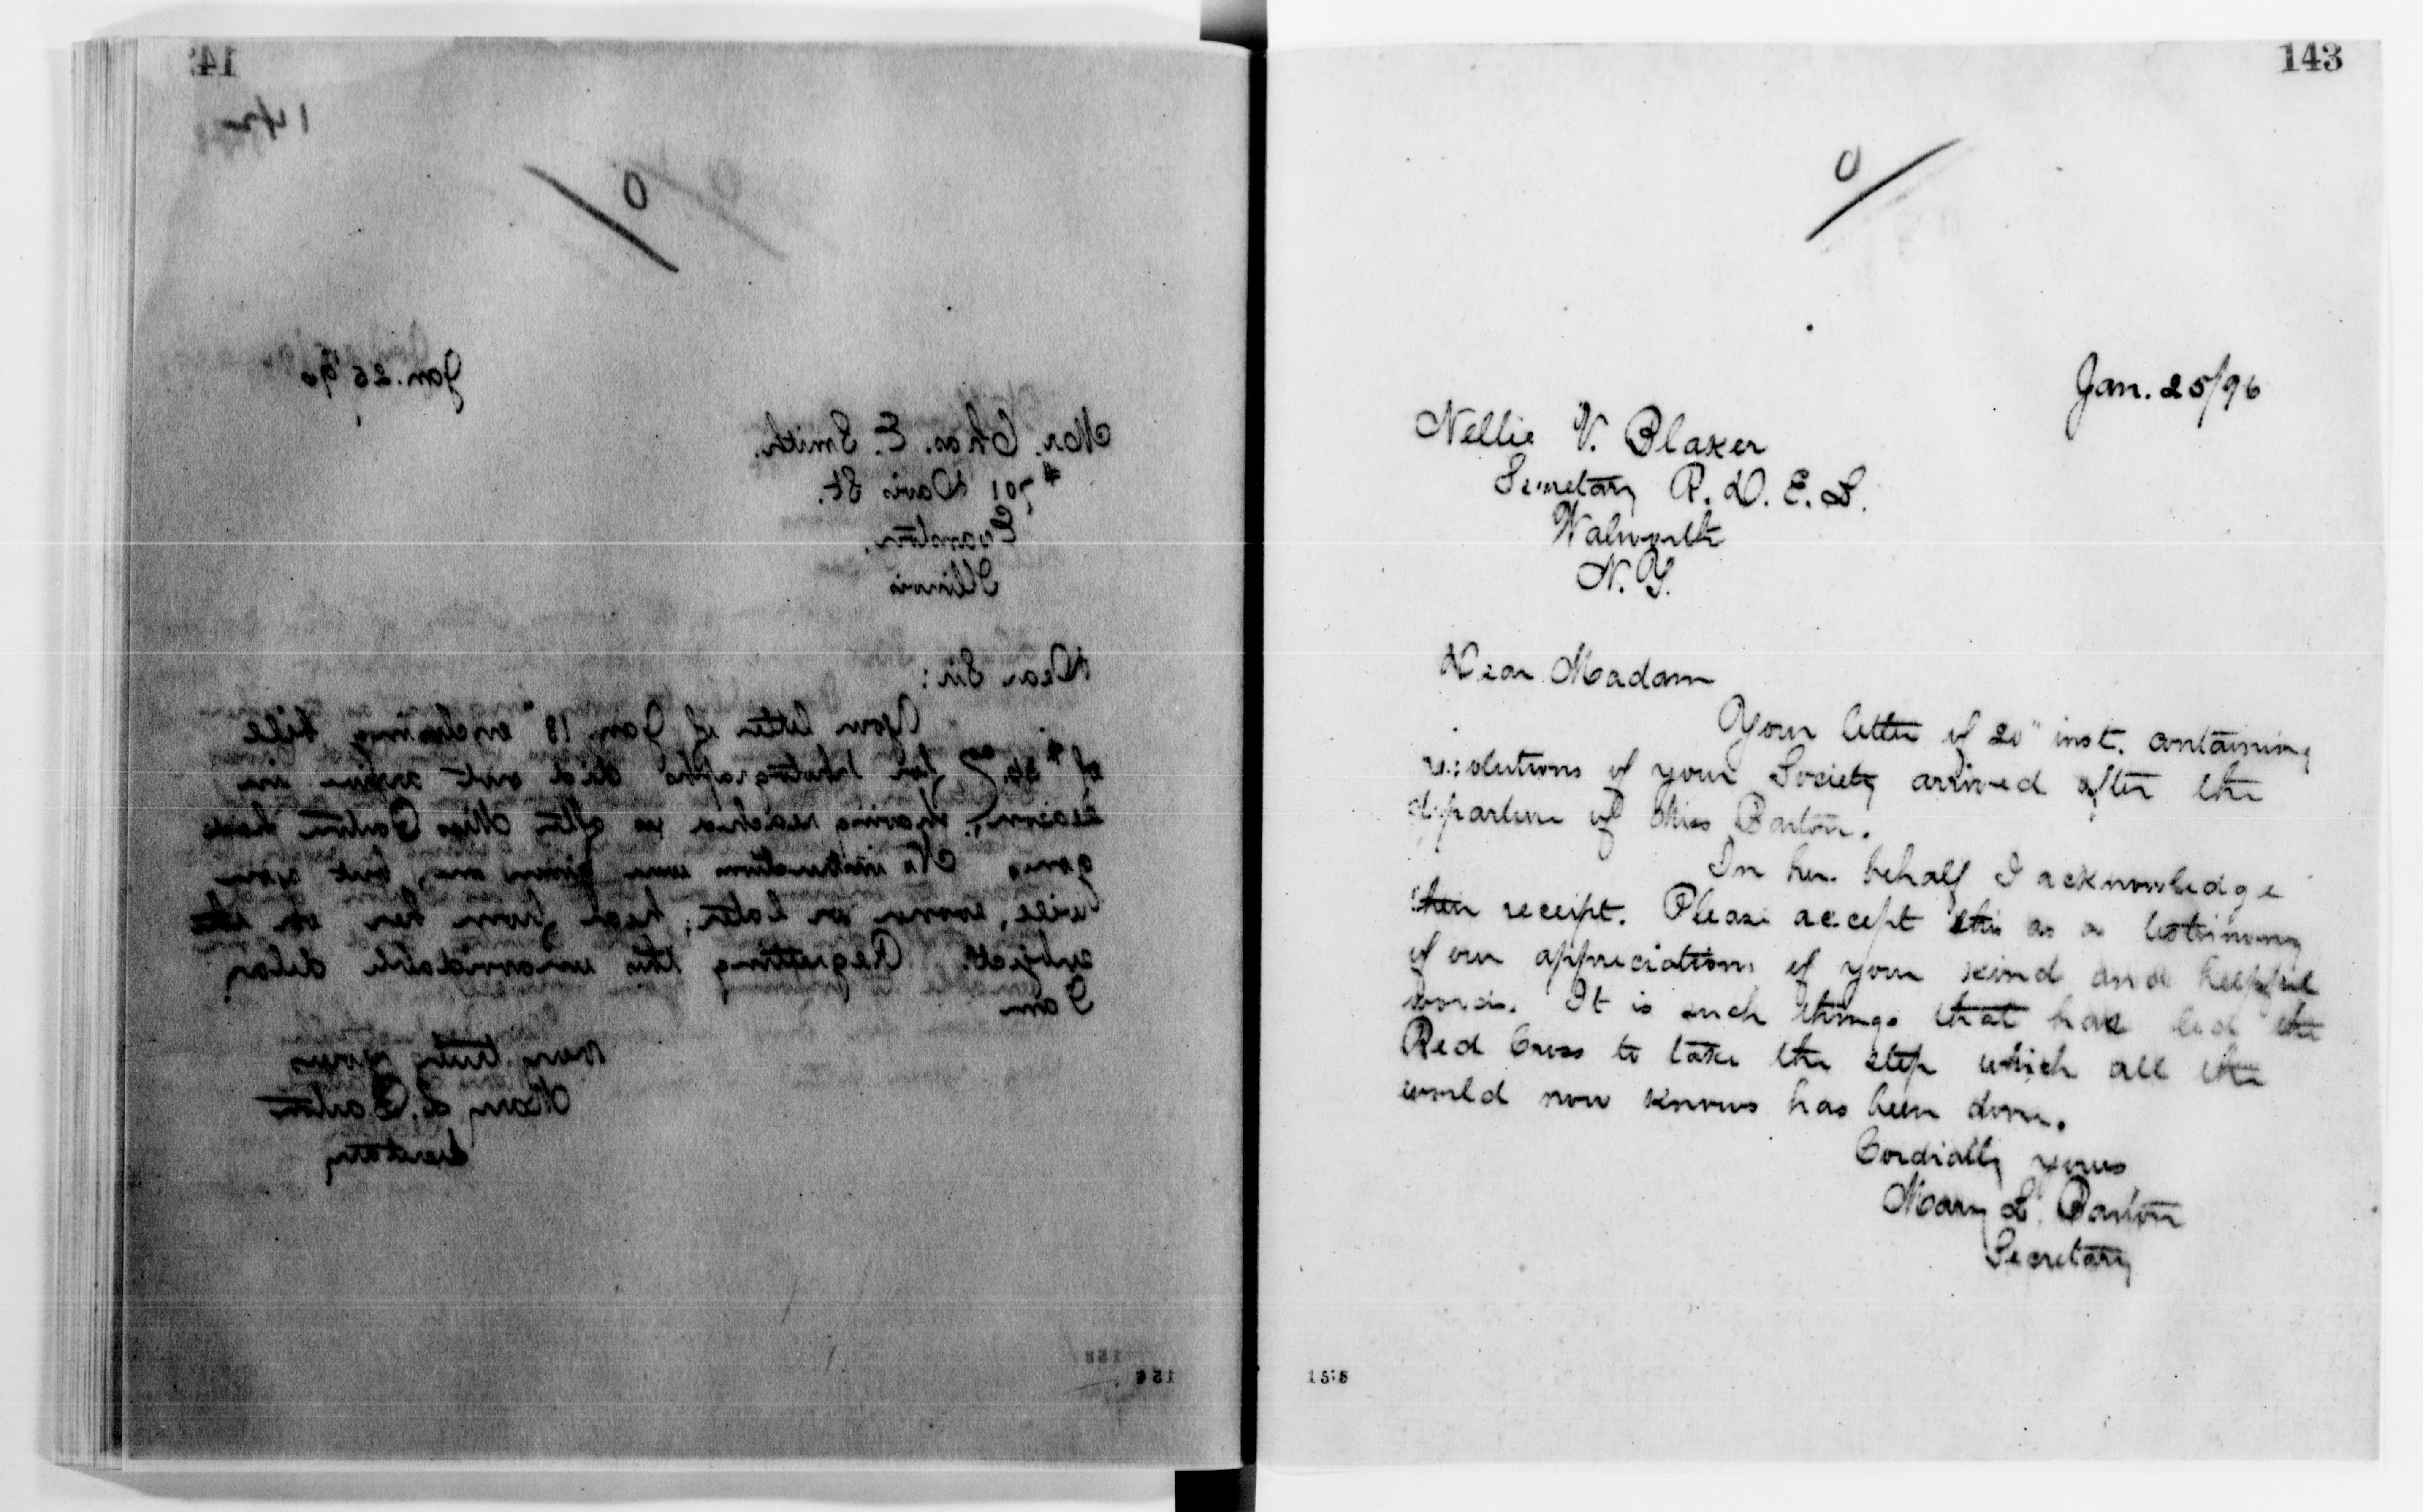 142
142
0
Jan. 25 '96
Mr. Chas. E. Smith.
# 701 Davis St.
Evanston.
Illinois
Dear Sir:
Your letter of Jan. 18" enclosing bill
of for photographs did not arrive in
season, having reached us after Miss Barton had
gone No instructions were given me, but you
will, sooner or later, hear from her on the
subject. Regretting this unavoidable delay
I am
very truly yours
Mary L. Barton
Secretary
158
143
0
Jan. 25/96
Nellie V. Blaker
Secretary R. D. E. S.
Walworth
N. Y.
Dear Madam
Your letter of 20" inst. containing
resolutions of your Society arrived after the
departure of Miss Barton.
In her behalf I acknowledge
their receipt. Please accept this as a testimony
of our appreciations of your kind and helpful
words. It is such things that have led the
Red Cross to take the step which all the
world now knows has been done.
Cordially yours
Mary L. Barton
Secretary
158